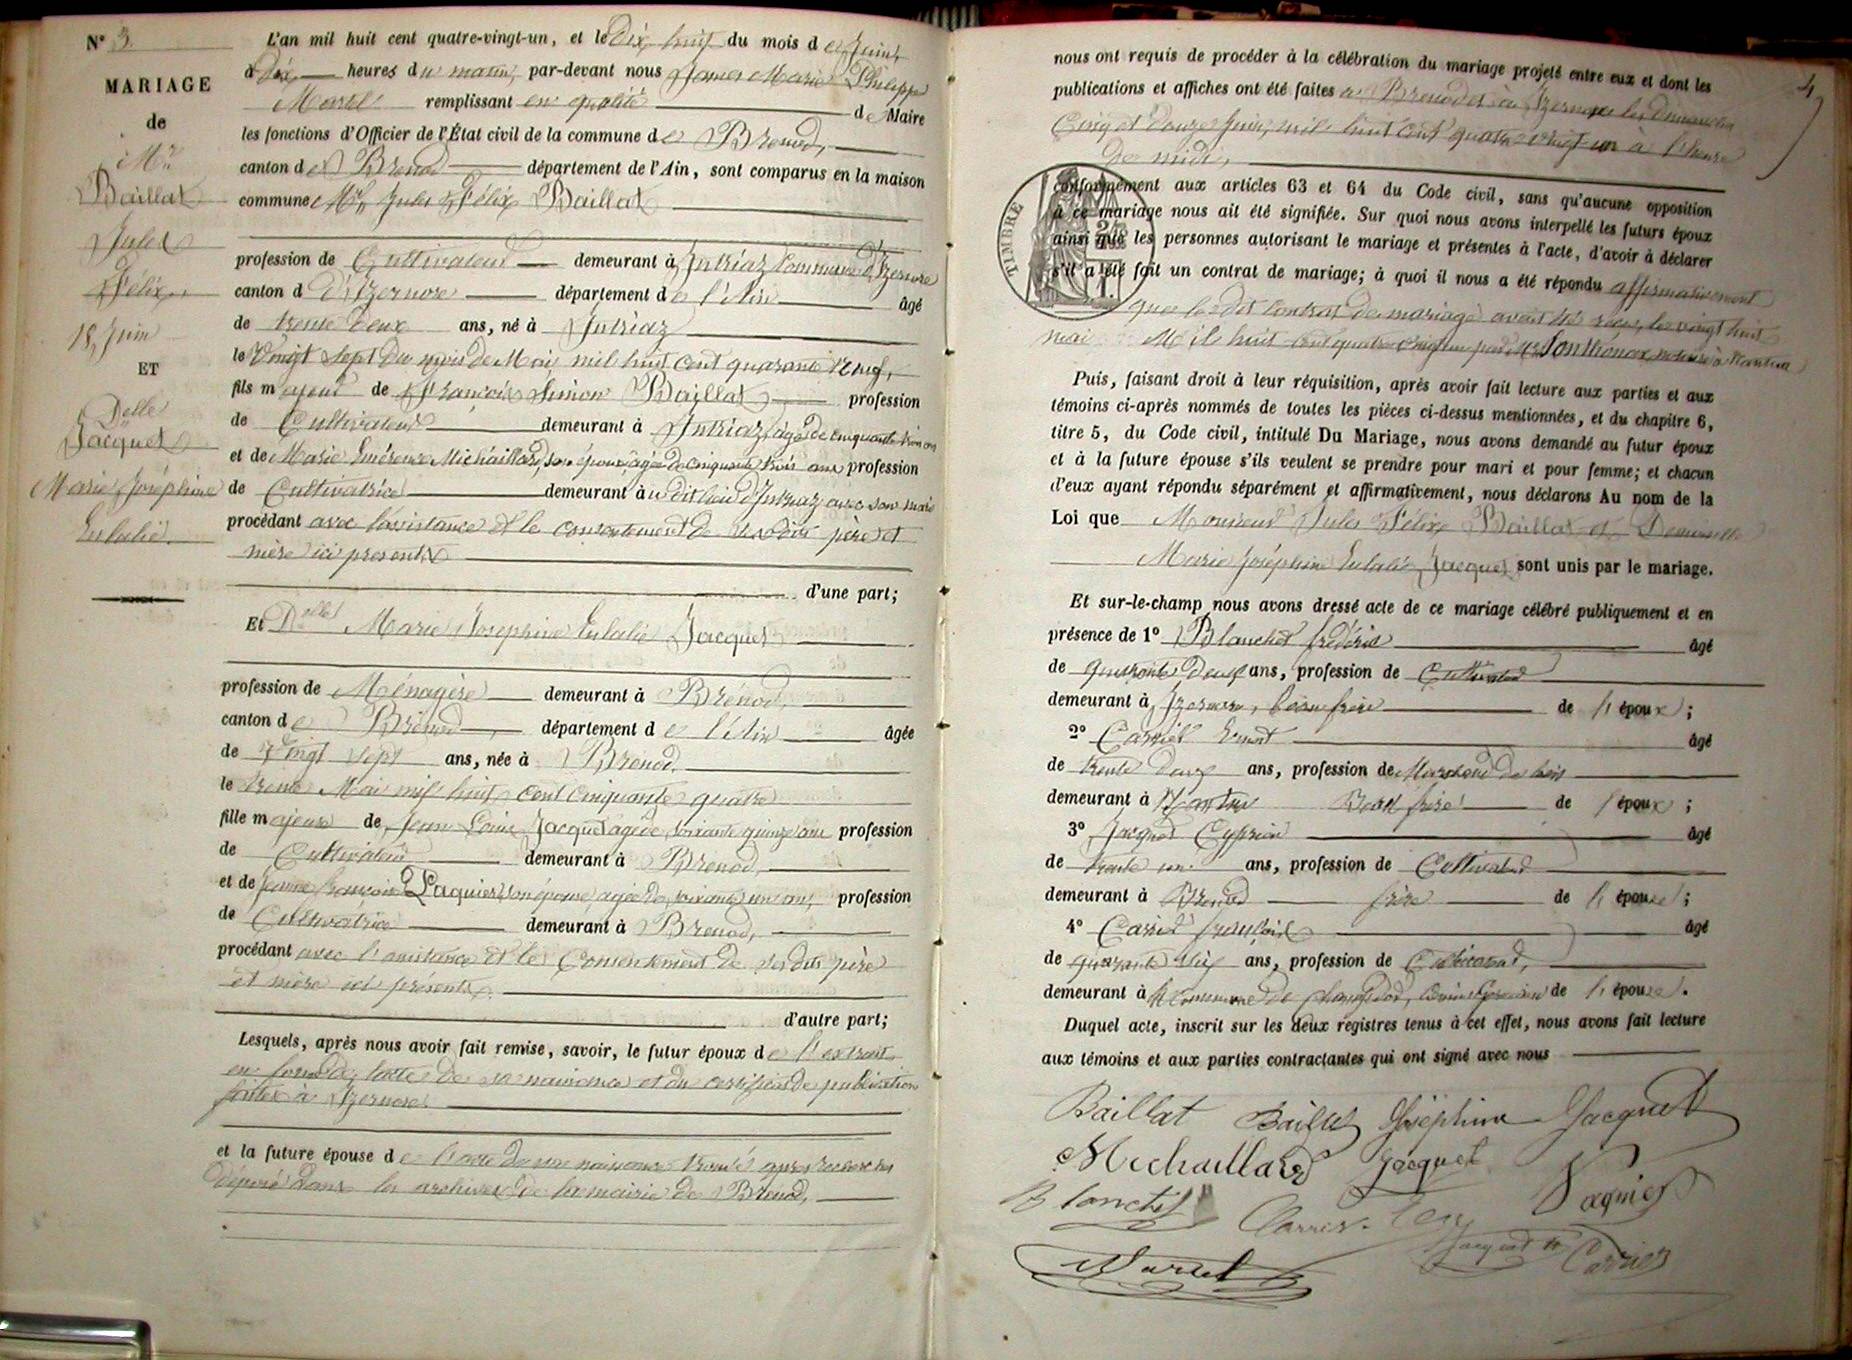 N° 3.
MARIAGE
de
Mr
Baillat
Jules
Félix
18 Juin
ET
Delle
Jacquet
Marie Joséphine
Eulalie.
L'an mil huit cent quatre-vingt-un, et le Dix huit du mois de Juin,
à Dix heures du matin, par-devant nous James Marie Philippe
Martel remplissant en qualité de Maire
les fonctions d'Officier de l'État civil de la commune de Brenod,
canton de Brenod département de l'Ain, sont comparus en la maison
commune Mr Jules Félix Baillat
profession de Cultivateur demeurant à Intriaz Commune d'Izernore
canton d d'Izernore département de l'Ain âgé
de trente deux ans, né à Intriaz
le Vingt sept du mois de Mai mil huit cent quarante neuf,
fils majeur de François Simon Baillat profession
de Cultivateur demeurant à Intriaz, âgé de cinquante trois ans
et de Marie Emérence Michaillard, son épouse, âgée de cinquante trois ans profession
de Cultivatrice demeurant au dit lieu d'Intriaz avec son mari
procédant avec l'assistance et le consentement de ses dits père et
mère ici présents
d'une part;
Et Delle Marie Joséphine Eulalie Jacquet
profession de Ménagère demeurant à Brénod,
canton de Brénod, département de l'Ain âgée
de Vingt sept ans, née à Brenod.
le trente Mai mil huit cent cinquante quatre
fille majeure de Jean Louis Jacquet âgé de soixante quinze ans profession
de Cultivateur demeurant à Brenod,
et de Jeanne Françoise Paquier son épouse, âgée de soixante un ans, profession
de Cultivatrice demeurant à Brenod,
procédant avec l'assistance et le Consentement de ses dits père
et mère ici présents.
d'autre part;
Lesquels, après nous avoir fait remise, savoir, le futur époux de l'extrait
en forme de l'acte de sa naissance et du certificat de publication
faites à Izernore.
et la future épouse de l'acte de sa naissance trouvé après recherches
déposé dans les archives de la mairie de Brenod,
4
nous ont requis de procéder à la célébration du mariage projeté entre eux et dont les
publications et affiches ont été faites à Brenod et à Izernore les dimanches
Cinq et douze Juin, mil huit cent quatre vingt un à l'heure
de midi,
TIMBRE
conformément aux articles 63 et 64 du Code civil, sans qu'aucune opposition
à ce mariage nous ait été signifiée. Sur quoi nous avons interpellé les futurs époux
ainsi que les personnes autorisant le mariage et présentes à l'acte, d'avoir à déclarer
s'il a été fait un contrat de mariage; à quoi il nous a été répondu affirmativement
que le dit contrat de mariage avait été reçu, le vingt huit
mai Mil huit cent quatre vingt un par Me notaire à Nantua
Puis, faisant droit à leur réquisition, après avoir fait lecture aux parties et aux
témoins ci-après nommés de toutes les pièces ci-dessus mentionnées, et du chapitre 6,
titre 5, du Code civil, intitulé Du Mariage, nous avons demandé au futur époux
et à la future épouse s'ils veulent se prendre pour mari et pour femme; et chacun
d'eux ayant répondu séparément et affirmativement, nous déclarons Au nom de la
Loi que Monsieur Jules Félix Baillat et Demoiselle
Marie Joséphine Eulalie Jacquet sont unis par le mariage.
Et sur-le-champ nous avons dressé acte de ce mariage célébré publiquement et en
présence de 1° Blanchet frédéric âgé
de quarante deux ans, profession de Cultivateur
demeurant à Izernore, beau frère de l'époux;
2° Carrier Ernest âgé
de trente deux ans, profession de Marchand de bois
demeurant à Nantua Beau frère de l'époux;
3° Jacquet Cyprien âgé
de trente un ans, profession de Cultivateur
demeurant à Brenod frère de l'épouse;
4° Carrier françois âgé
de quarante six ans, profession de Cultivateur,
demeurant à Commune de Champdor, Cousin Germain de l'épouse.
Duquel acte, inscrit sur les deux registres tenus à cet effet, nous avons fait lecture
aux témoins et aux parties contractantes qui ont signé avec nous
Baillat Baillat Joséphine Jacquet
Michaillard Jacquet Paquier
Blanchet Carrier
Jacquet Carrier
Martel